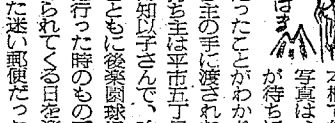 写真は、
が待ち
ったことがわかり
主の手に渡され
ち主は平市五丁
知以子さんで、
ともに後楽園球
行った時のもの
られてくる日を
た迷い郵便だっ